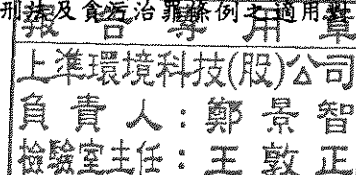 刑法及貪污治罪條例之適用對
報告專用章
上準環境科技(股)公司
負責人:鄭景智
檢驗室主任:王敦正